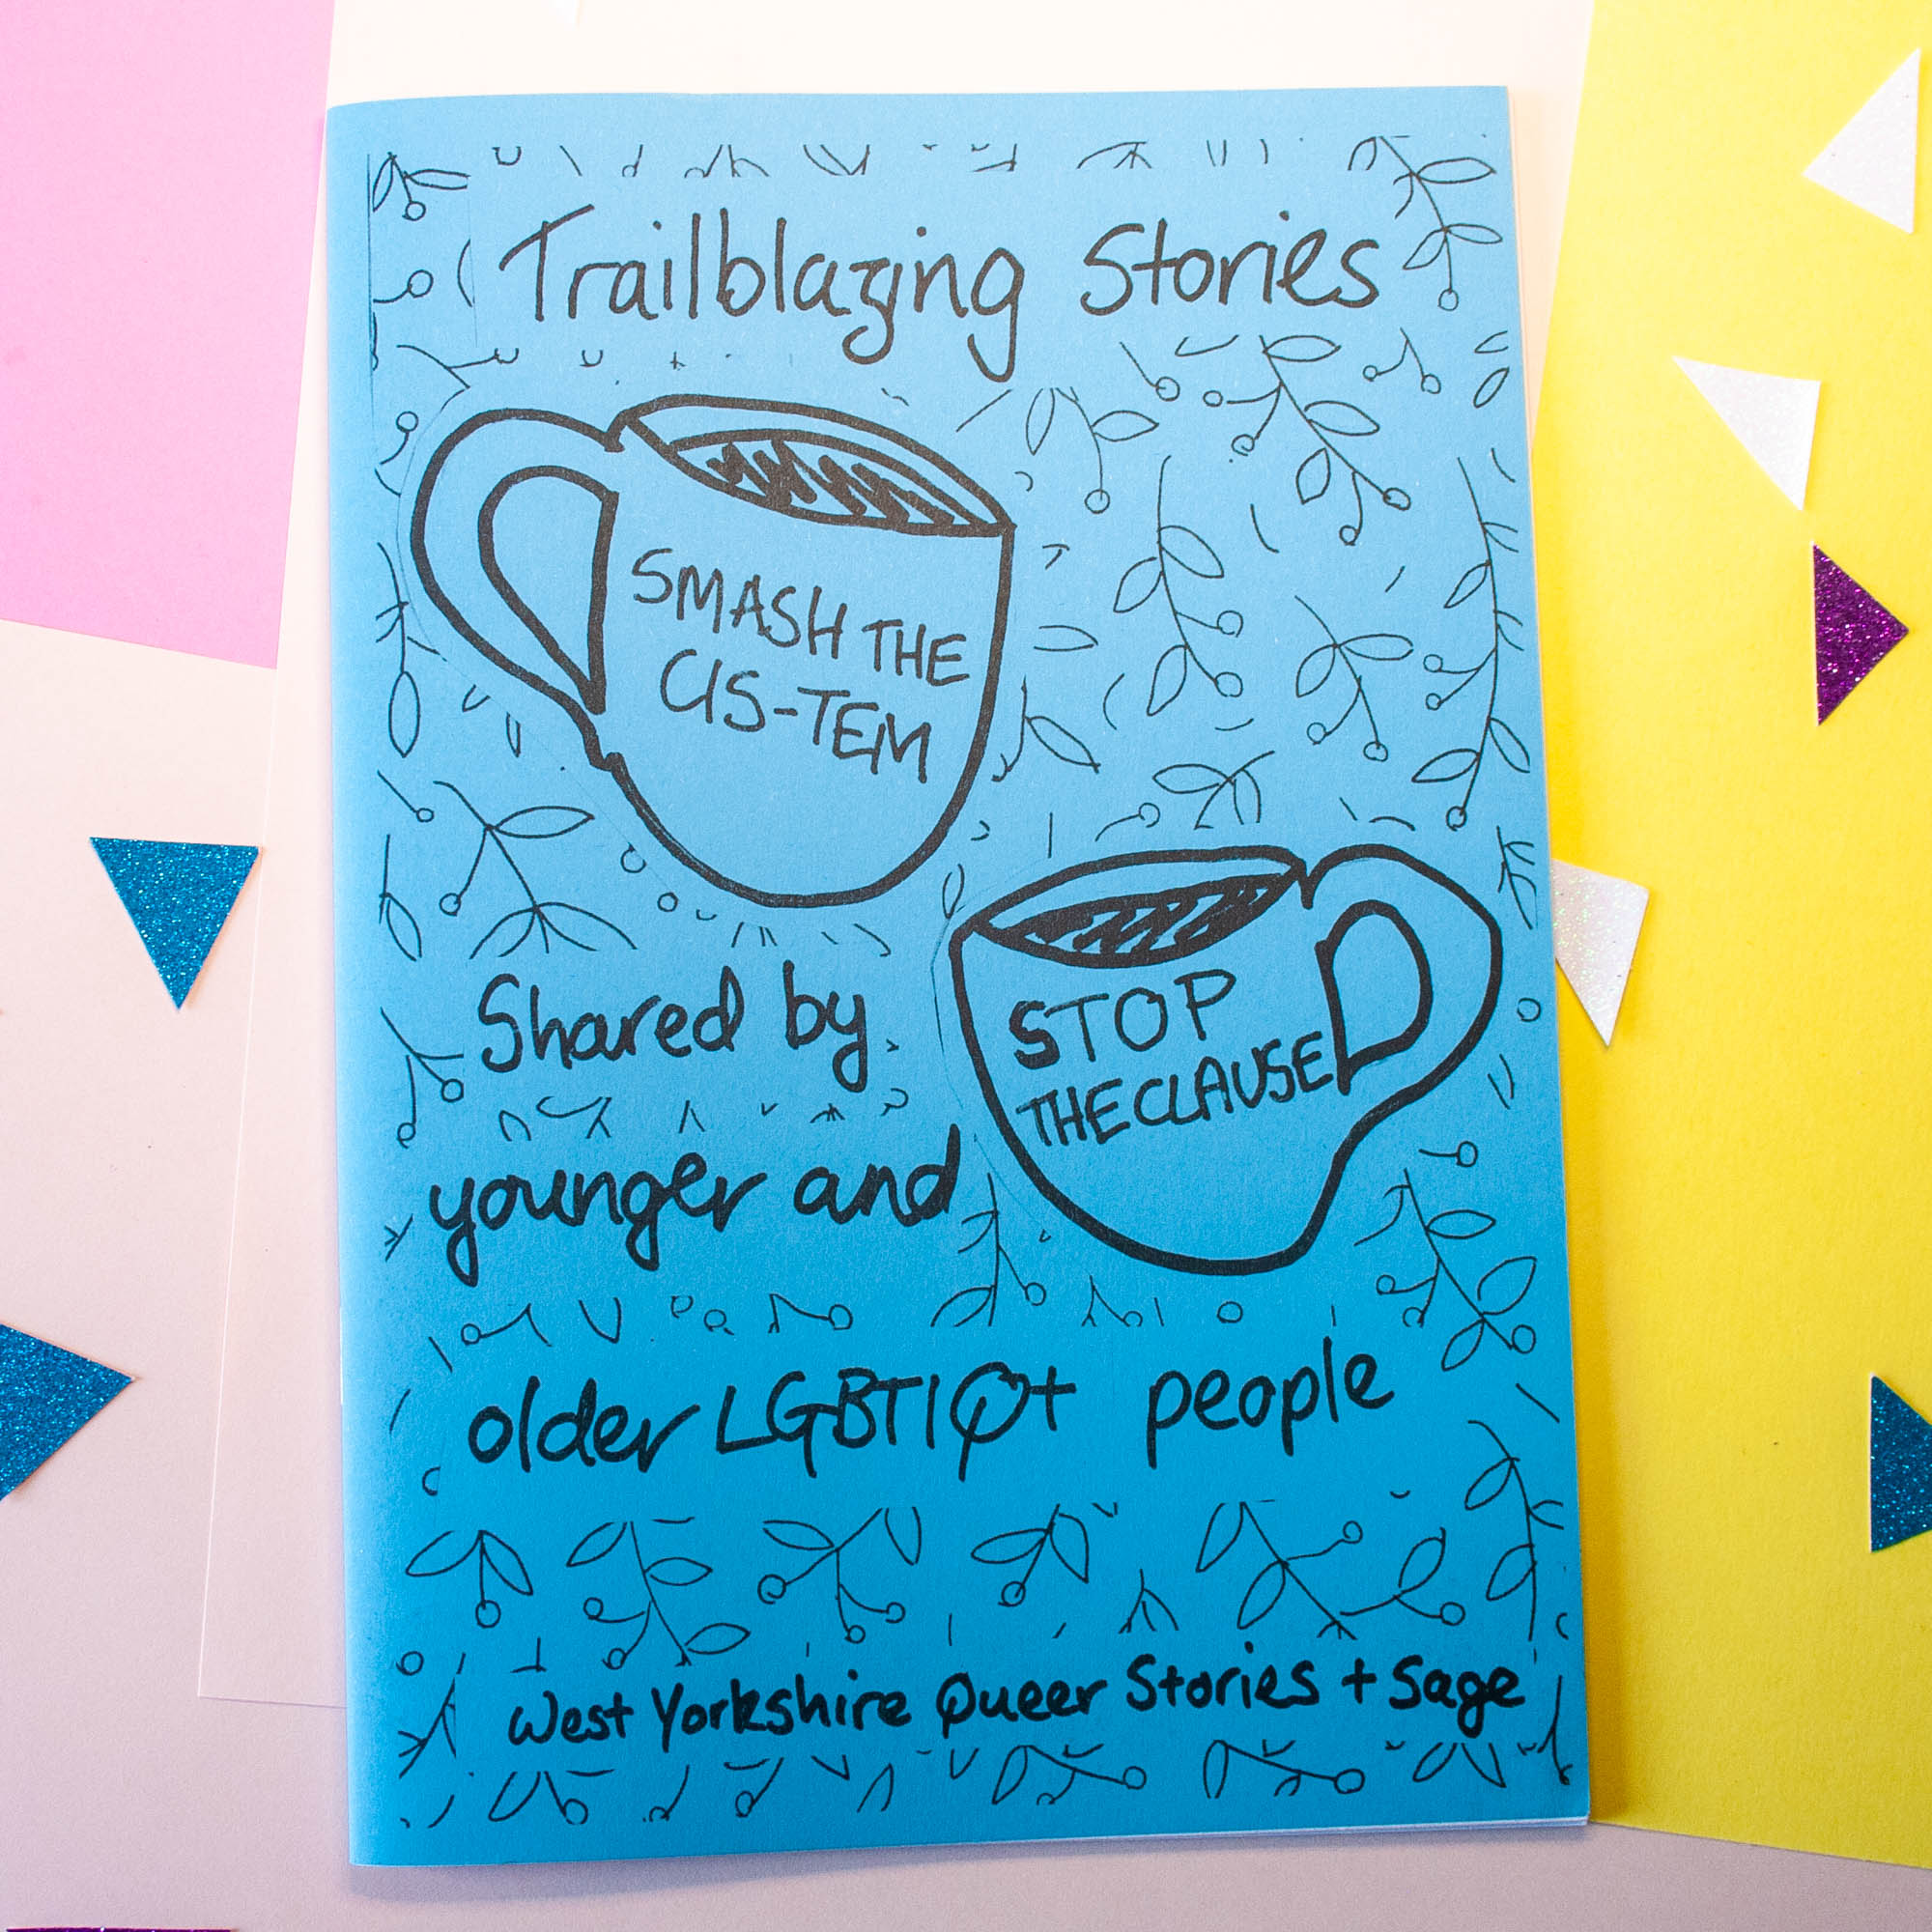 Trailblazing Stories
SMASH THE
CIS-TEM
STOP
THE CLAUSE
Shared by
younger and
older LGBTIQ+ people
West Yorkshire Queer Stories + Sage